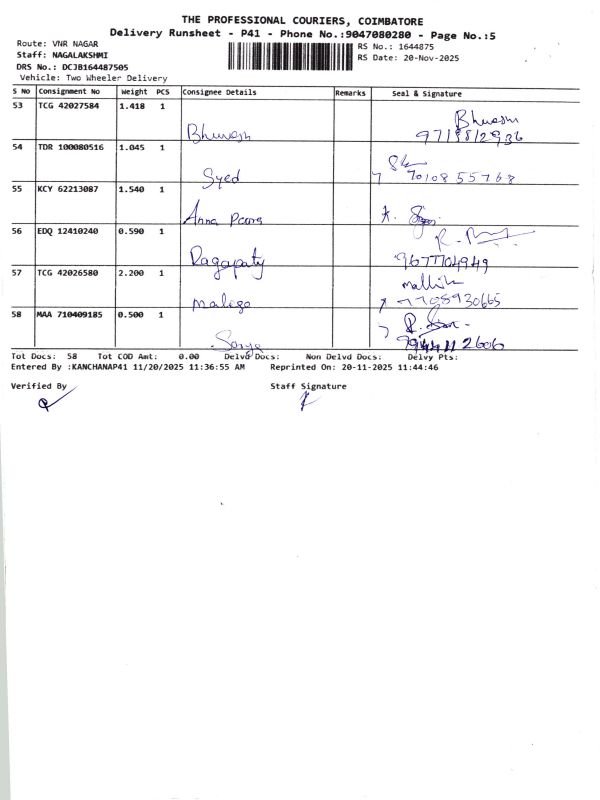 THE PROFESSIONAL COURIERS, COIMBATORE
Delivery Runsheet - P41 - Phone No.:9047080280 - Page No.:5
Route: VNR NAGAR
RS No.: 1644875
Staff: NAGALAKSHMI
RS Date: 20-Nov-2025
DRS No.: DCJB164487505
Vehicle: Two Wheeler Delivery
S No Consignment No Weight PCS Consignee Details Remarks Seal & Signature
53 TCG 42027584 1.418 1
Bhuvesh
54 TDR 100080516 1.045 1
Syed 7010855768
55 KCY 62213087 1.540 1
Anna
56 EDQ 12410240 0.590 1
Ragapaty 9677704949
57 TCG 42026580 2.200 1
7708930665
58 MAA 710409185 0.500 1
Tot Docs: 58 Tot COD Amt: 0.00 Delvd Docs: Non Delvd Docs: Delvy Pts:
Entered By :KANCHANAP41 11/20/2025 11:36:55 AM Reprinted On: 20-11-2025 11:44:46
Verified By Staff Signature